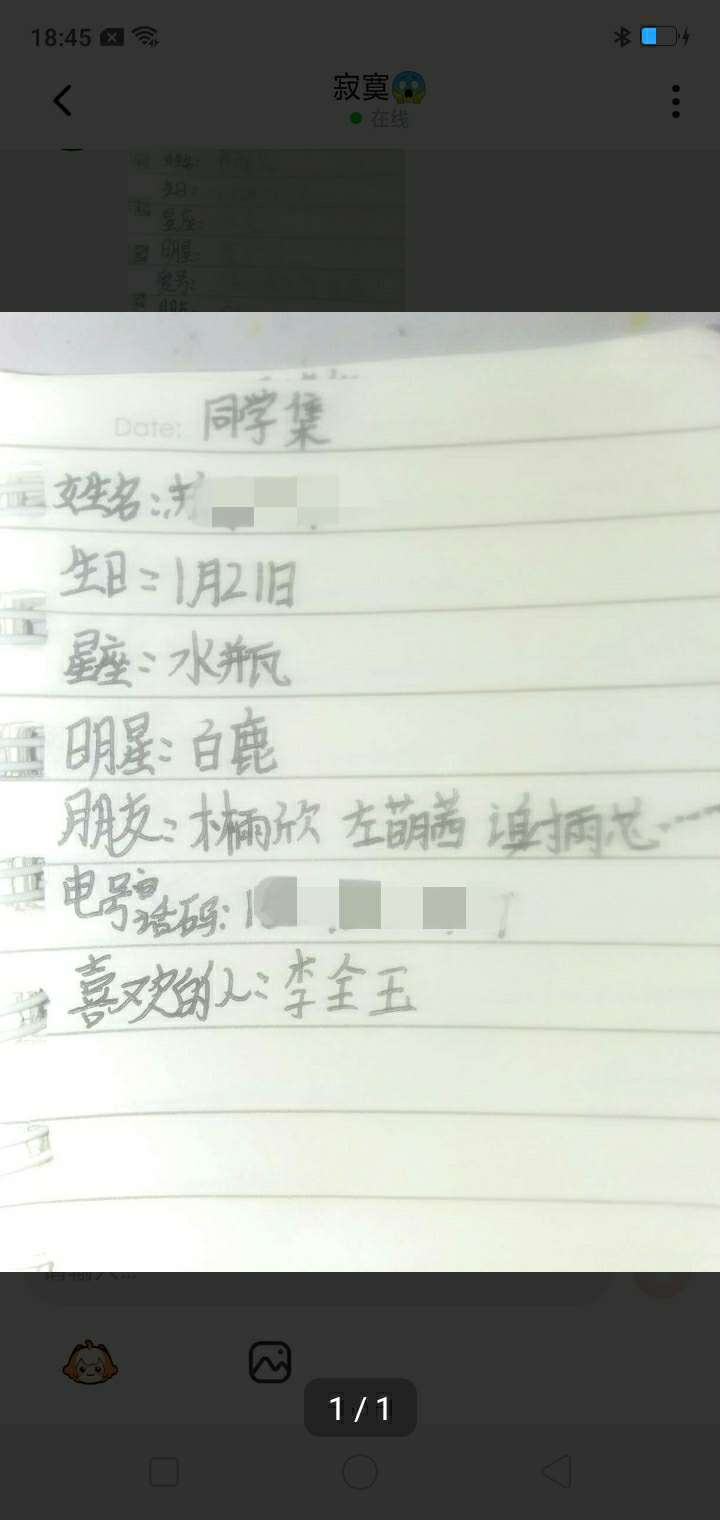 18:45
寂寞😱
在线
生日:
星座:
明星:
Date: 同学集
姓名:
生日:1月21日
星座:水瓶
明星:白鹿
朋友:林雨欣 左萌茜
电话号码:1
喜欢的人:李全玉
1 / 1